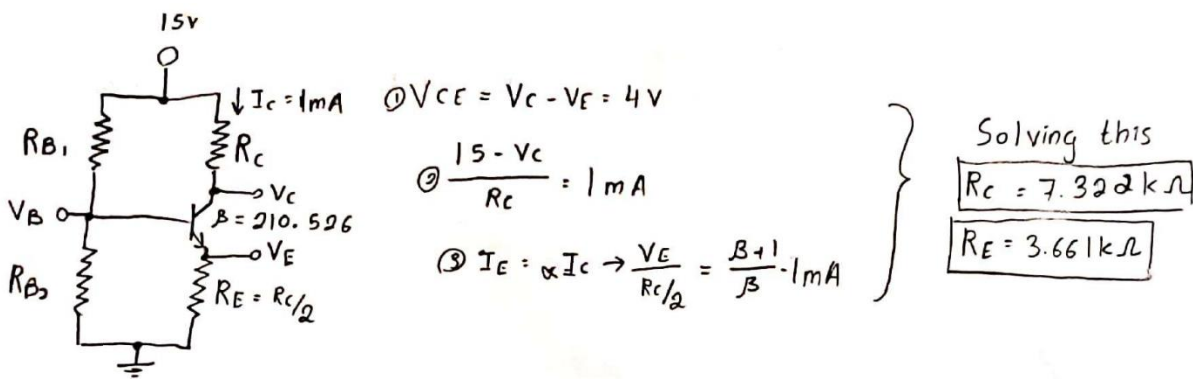 15v
↓ Ic = 1mA
RB1
Rc
VB
Vc
β = 210.526
VE
RB2
RE = Rc/2
① VCE = Vc - VE = 4v
② 15 - Vc / Rc = 1mA
③ IE = ∝ Ic → VE / Rc/2 = β+1 / β · 1mA
Solving this
Rc = 7.322kΩ
RE = 3.661kΩ